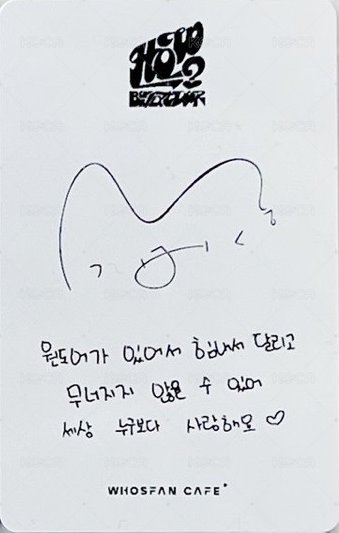 HOW?
BOYNEXTDOOR
원도어가 있어서 힘내서 달리고
무너지지 않을 수 있어
세상 누구보다 사랑해요 ♡
WHOSFAN CAFE